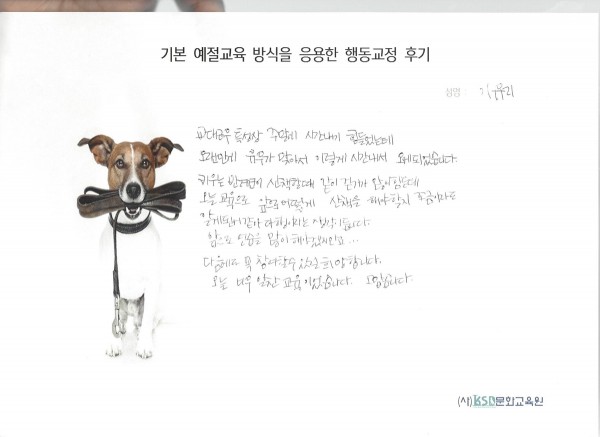 기본 예절교육 방식을 응용한 행동교정 후기
성명 :
교대근무 특성상 주말에 시간내기 힘들었는데
오랜만에 휴무가 맞아서 이렇게 시간내서 오게되었습니다.
키우는 반려견이 산책할때 같이 걷기가 많이 힘든데
오늘 교육으로 앞으로 어떻게 산책을 해야할지 조금이나마
알게된거 같아 다행이라는 생각이 듭니다.
앞으로 연습을 많이 해야겠지만요...
다음에도 꼭 참여할수 있길 희망합니다.
오늘 너무 알찬 교육이었습니다. 고맙습니다.
(사)KSD문화교육원